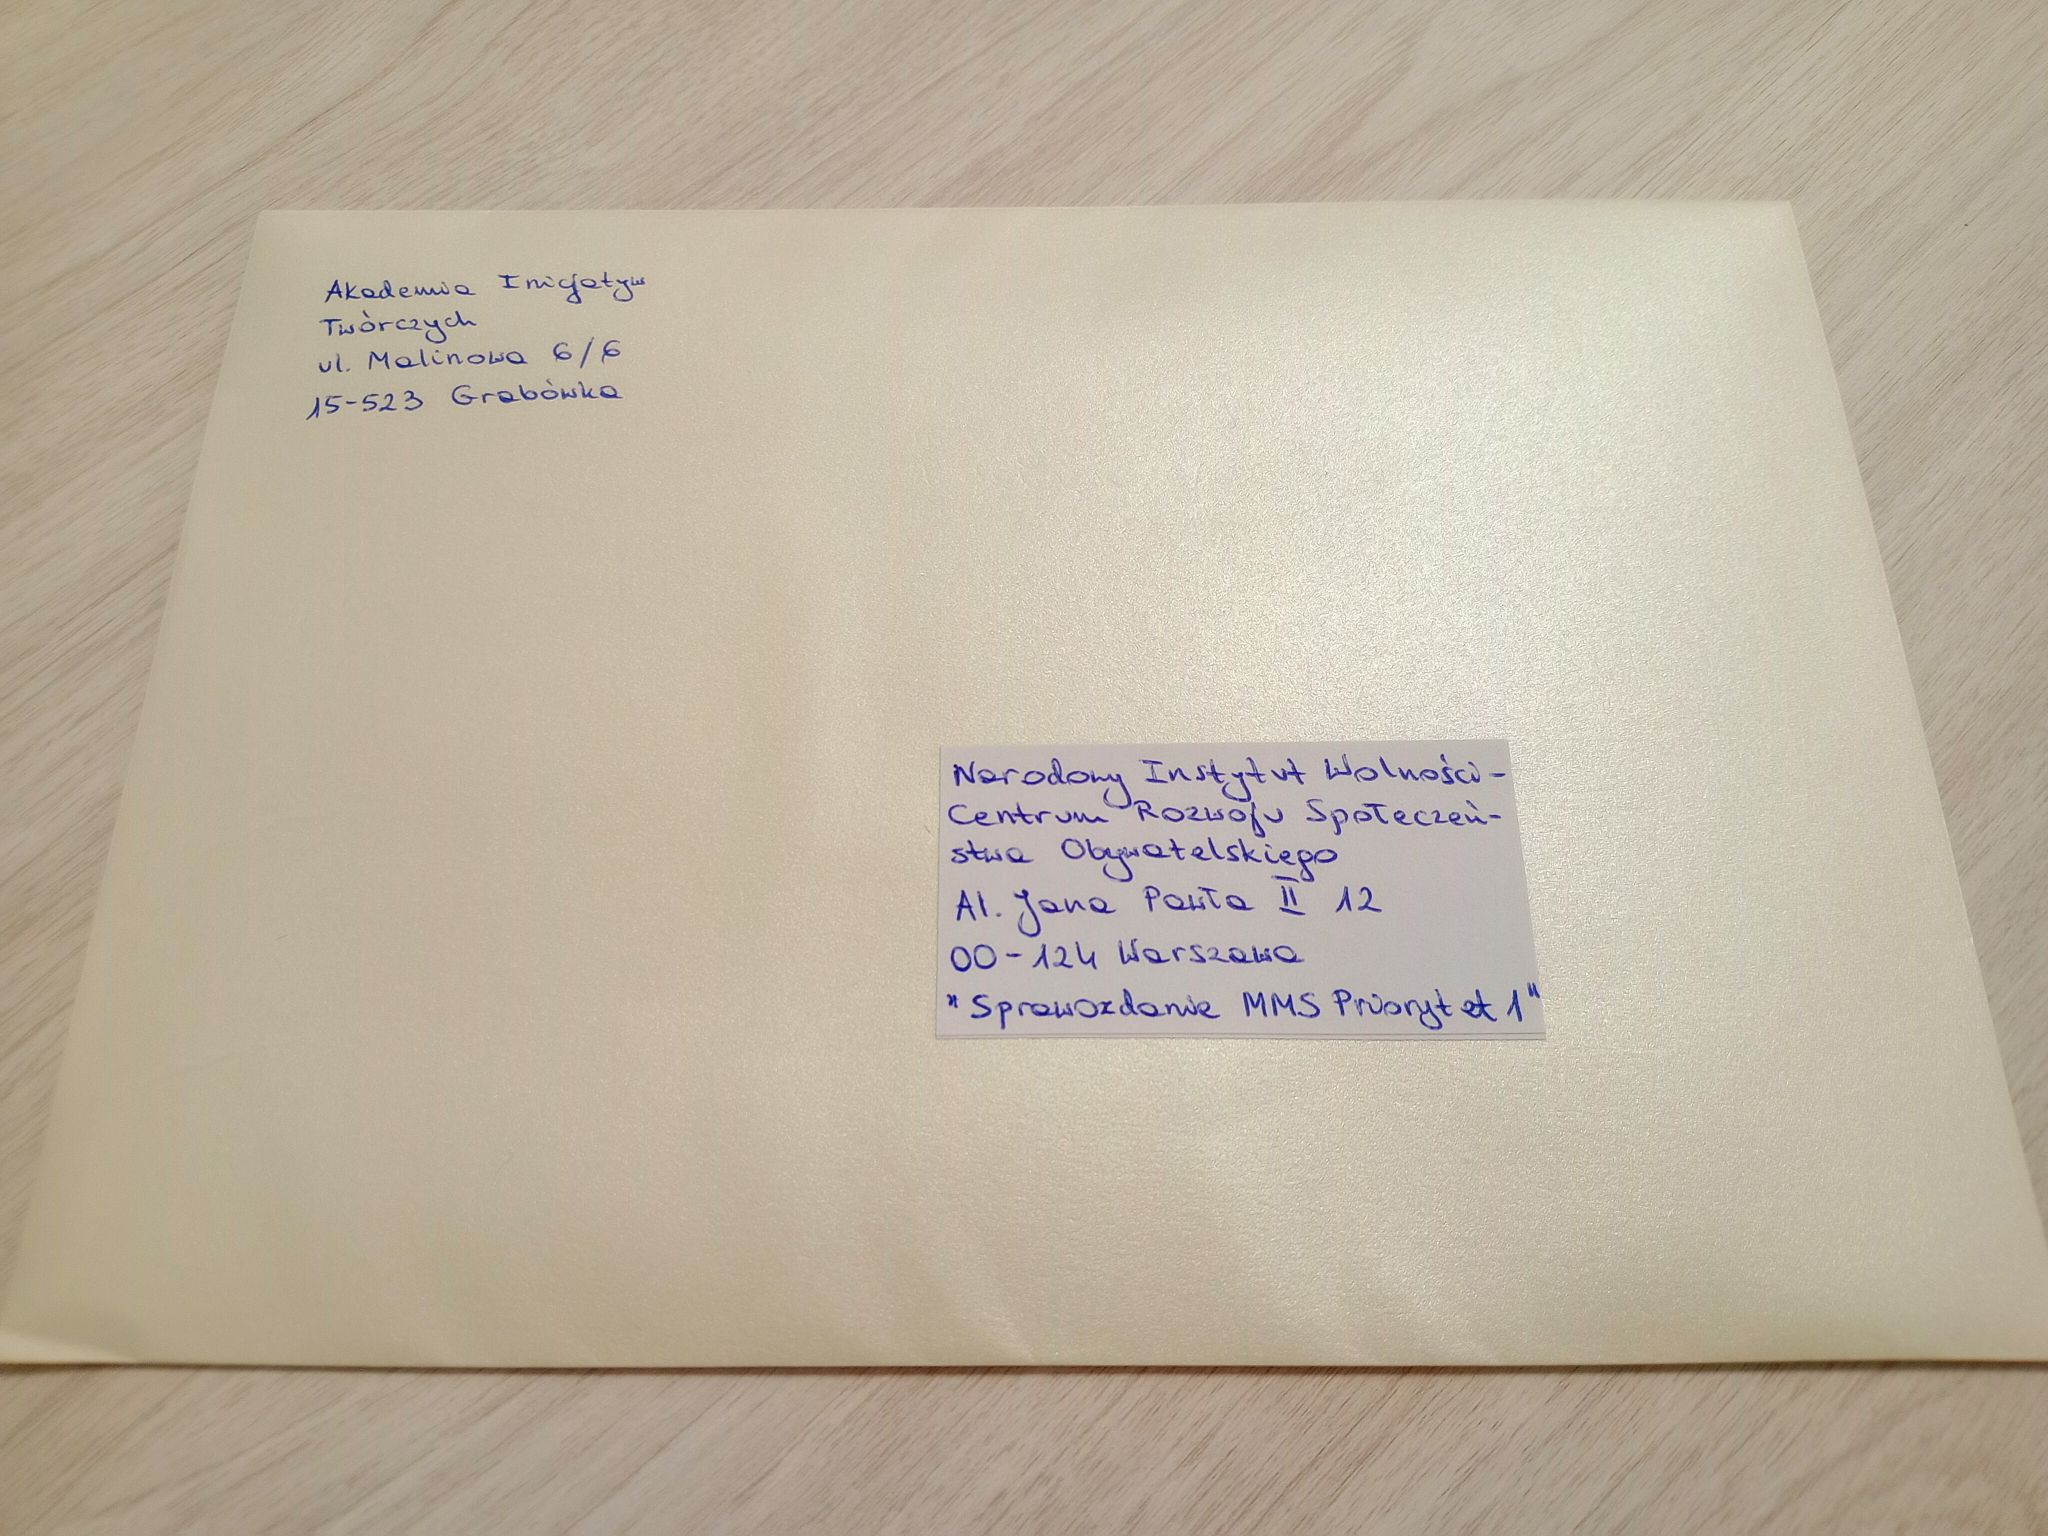 Akademia Inicjatyw
Twórczych
ul. Malinowa 6/6
15-523 Grabówka
Narodowy Instytut Wolności -
Centrum Rozwoju Społeczeń-
stwa Obywatelskiego
Al. Jana Pawła II 12
00-124 Warszawa
"Sprawozdanie MMS Priorytet 1"